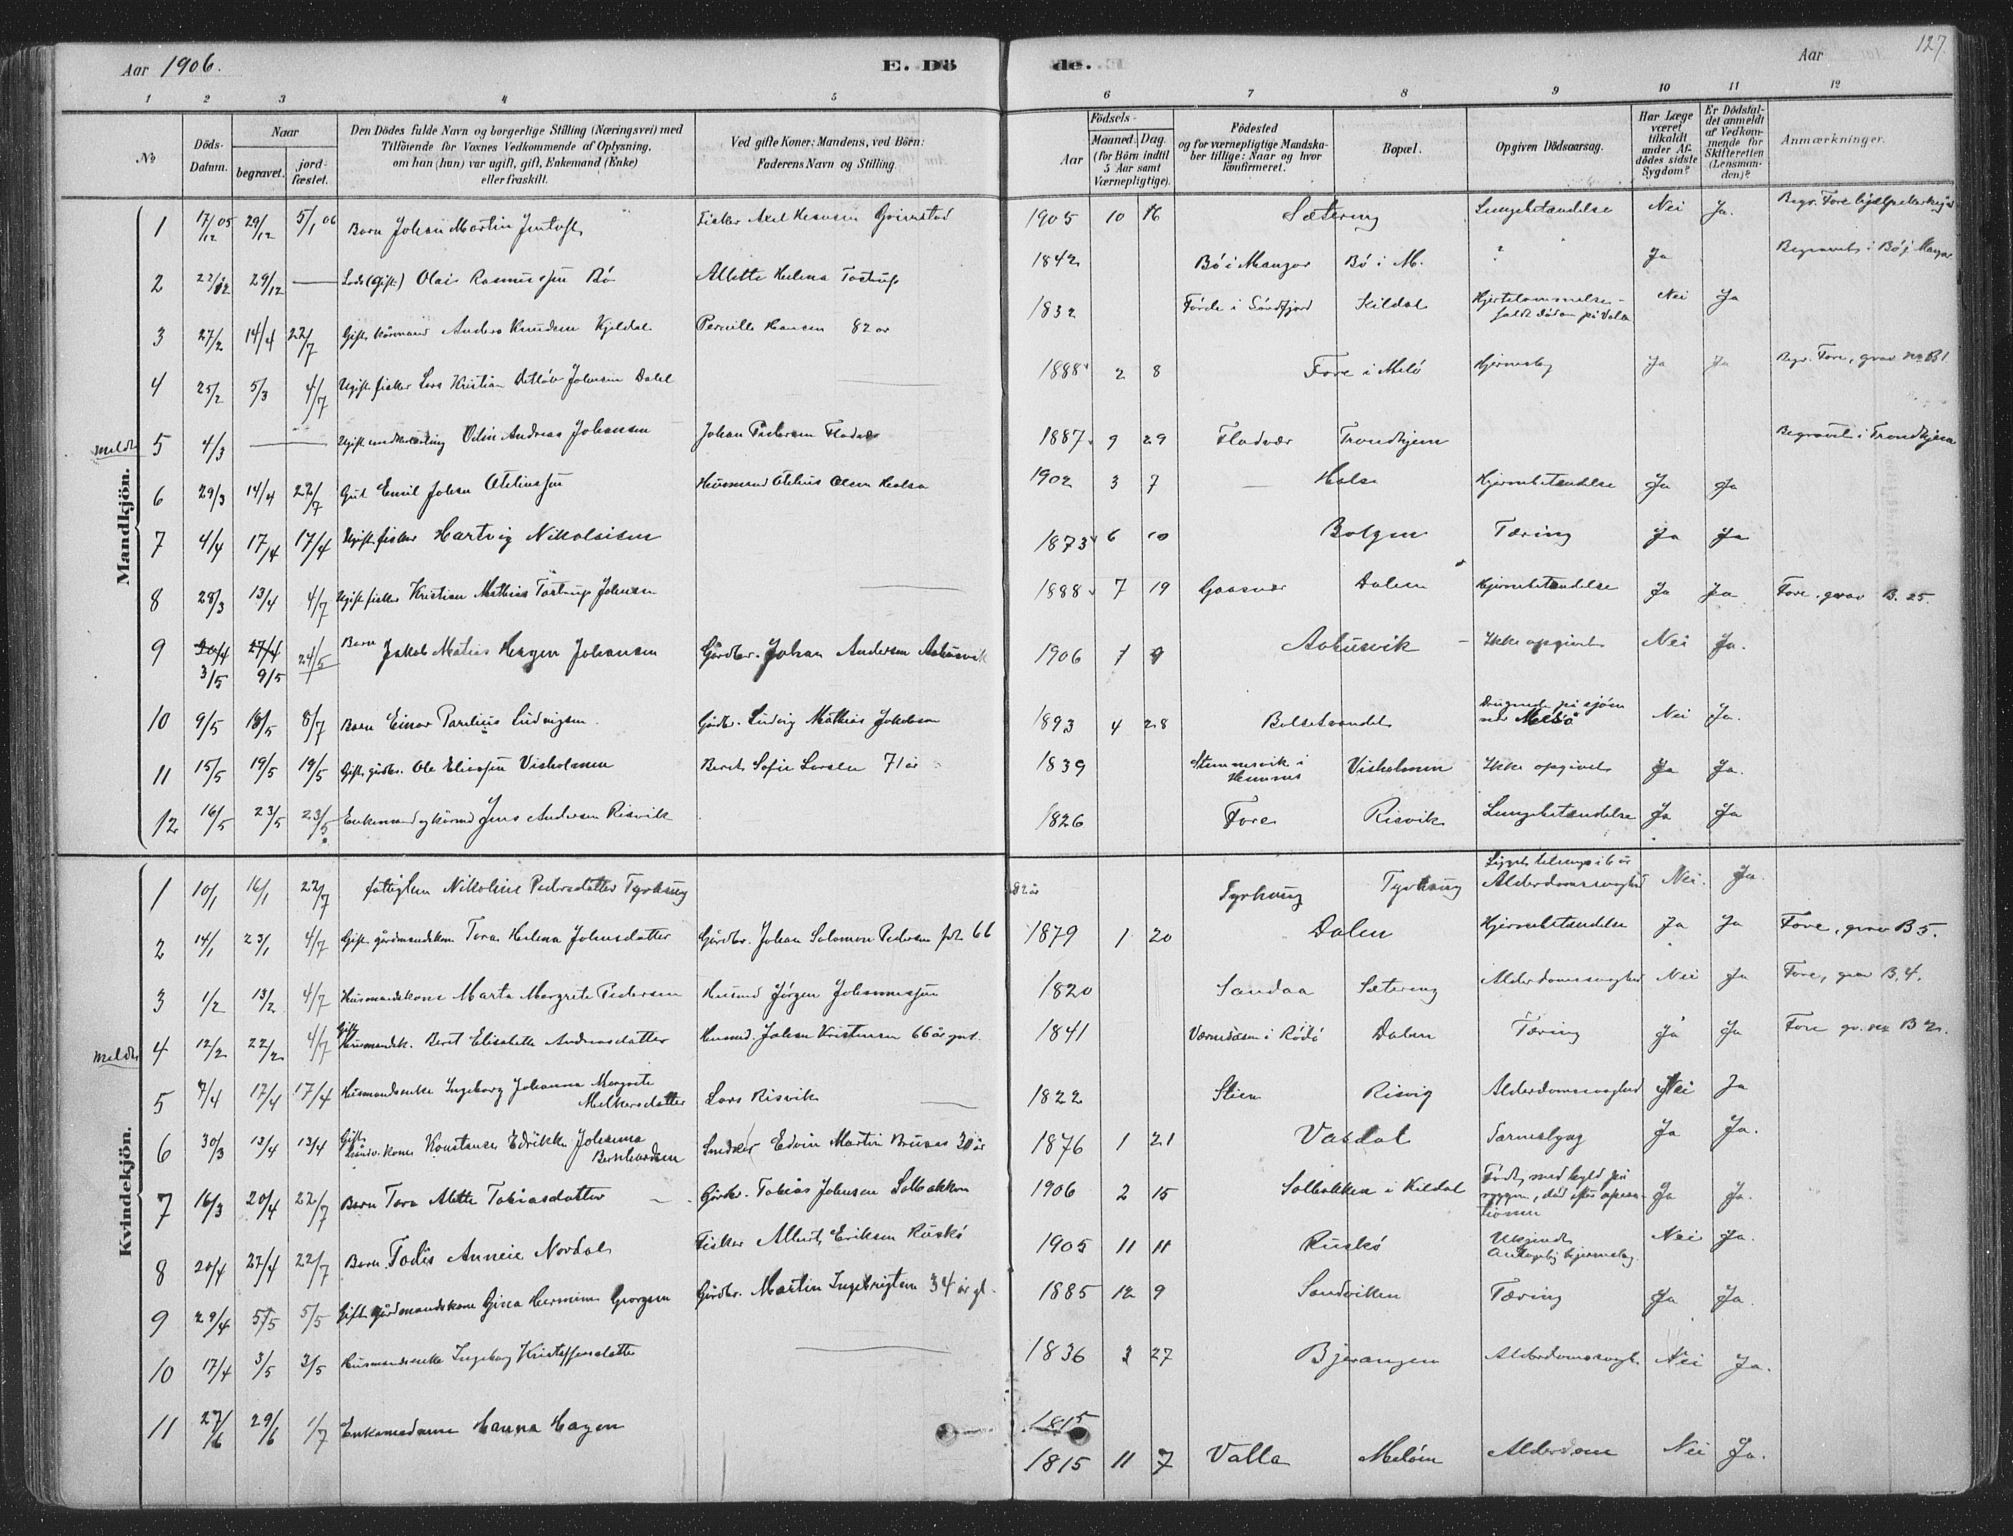 Aar 1906.
E. Dö
de.
Aar
127.
1 2 3 4 5 6 7 8 9 10 11 12
No
Döds-Datum.
Naar
begravet.
jord-fæstet.
Den Dödes fulde Navn og borgerlige Stilling (Næringsvei) med
Tilföiende for Voxnes Vedkommende af Oplysning,
om han (hun) var ugift, gift, Enkemand (Enke)
eller fraskilt.
Ved gifte Koner: Mandens, ved Börn:
Faderens Navn og Stilling.
Födsels-
Aar
Maaned. Dag.
(for Börn indtil
5 Aar samt
Værnepligtige).
Födested
og for værnepligtige Mandska-
ber tillige: Naar og hvor
konfirmeret.
Bopæl.
Opgiven Dödsaarsag.
Har Læge
været
tilkaldt
under Af-
dödes sidste
Sygdom?
Er Dödsfal-
det anmeldt
af Vedkom-
mende for
Skifteretten
(Lensman-
den)?
Anmærkninger.
Mandkjön.
1 17/12 05 29/12 5/1 06 Barn Johan Martin Jentoft Fisker Axel Hansen 1905 10 16 Sætering Lungebetændelse Nei Ja. Begr. Fore
2 29/12 Olai Rasmussen Bø Alette Helena Tostrup 1842 Bø i Mangor Bø i M. ? Ja Begravet i Bø i Mangor
3 27/2 14/4 22/7 Gift kårmand Anders Knudsen Kjeldal Pernille Hansen 82 år 1832 Förde i Söndfjord Kildal Hjertelammelse - faldt död om på Valla Nei Ja
4 25/2 5/3 4/7 Ugift fisker Lars Kristian Detlöv Johnsen Dalel 1888 2 8 Fore i Melö Hjerneslag Ja Ja Begr. Fore, grav no B1.
meldt 5 4/3 Ugift Odin Andreas Johansen Johan Pedersen Flodvær 1887 9 29 Flodvær Trondhjem Begravet i Trondhjem
6 29/3 14/4 22/7 Gut Emil Johan Otelinssen Husmand Otelius Olsen Halsa 1902 3 7 Halsa Hjernebetændelse Ja Ja
7 4/4 17/4 17/4 Ugift fisker Hartvig Nikolaisen 1873 6 10 Bolgen Tæring Ja Ja
8 28/3 13/4 4/7 Ugift fisker Kristian Mathias Tostrup Johnsen 1888 7 19 Gaasvær Dalen Hjernebetændelse Ja Ja Fore, grav B. 25.
9 30/4 27/4 24/5 Barn Jakob Matias Hagen Johansen Gårdbr. Johan Andersen Aakusvik 1906 1 9 Aakusvik Ikke opgivet Nei Ja.
3/5 9/5
10 9/5 18/5 8/7 Barn Einar Parelius Ludvigsen. Gårdbr. Ludvig Mathias Jakobsen 1893 4 28 Bolsetvandet Druknede på sjøen ved Melö Nei Ja.
11 15/5 19/5 19/5 Gift gårdbr. Ole Eliassen Visholmen Beret Sofie Larsen 71 år 1839 Stemmesvik i Hemnes Visholmen Ikke opgivet Ja Ja.
12 16/5 23/5 23/5 Enkemand og kårmd Jens Andersen Risvik 1826 Fore Risvik Lungebetændelse Ja Ja
Kvindekjön.
1 10/1 16/1 22/7 fattiglem Nikoline Pedersdatter Tyvhaug 82 år Tyvhaug Tyvhaug Alderdomssvaghed Nei. Ja.
2 14/1 23/1 4/7 Gift gårdmandskone Tora Helena Johnsdatter Gårdbr. Johan Solomon Pedersen fdt 66 1879 1 20 Dalen Hjernebetændelse Ja Ja Fore, grav B 5.
3 1/2 13/2 4/7 Husmandskone Marta Margrete Pedersen Husmd Jørgen Johannessen 1820 Sandaa Sætering Alderdomssvaghed Nei Ja Fore, grav B. 4.
meldt 4 12/2 22/2 4/7 Gift Husmandsk. Beret Elisabeth Andreasdatter Husmd. Johan Kristensen 66 år gml. 1841 Værnedasen i Rödö Dalen Tæring Ja Ja Fore gr. no B 2.
5 7/4 17/4 17/4 Husmandsenke Ingeborg Johanna Margrete Melkersdatter Lars Risvik 1822 Stien Risvig Alderdomssvaghed Nei Ja
6 30/3 13/4 13/4 Gift Konstance Edrikke Johanna Bernhardsen Snedker Edvin Martin Bruses 30 år 1876 1 21 Vasdal Tarmslyng Ja Ja.
7 16/3 20/4 22/7 Barn Tora Alette Tobiasdatter Gårdbr. Tobias Johnsen Solbakken 1906 2 15 Solbakken i Kildal Født med byld på ryggen, död efter operationen Ja Ja.
8 20/4 27/4 22/7 Barn Todis Anneie Nordal Fisker Albert Eriksen Ruskö 1905 11 11 Ruskö Ukjendt Antagelig hjerneslag Nei Ja.
9 29/4 5/5 5/5 Gift gårdmandskone Gina Hermine Georgsen Gårdbr. Martin Ingebrigtsen 34 år gl. 1885 12 9 Sandviken Tæring Ja Ja.
10 17/4 3/5 3/5 Husmandsenke Ingeborg Kristoffersdatter 1836 3 27 Bjerangen Alderdomssvagh. Nei Ja.
11 27/6 29/6 1/7 Enkemadame Hanna Hagen 1815
1815 11 7 Valla Meløen Alderdom Nei Ja.